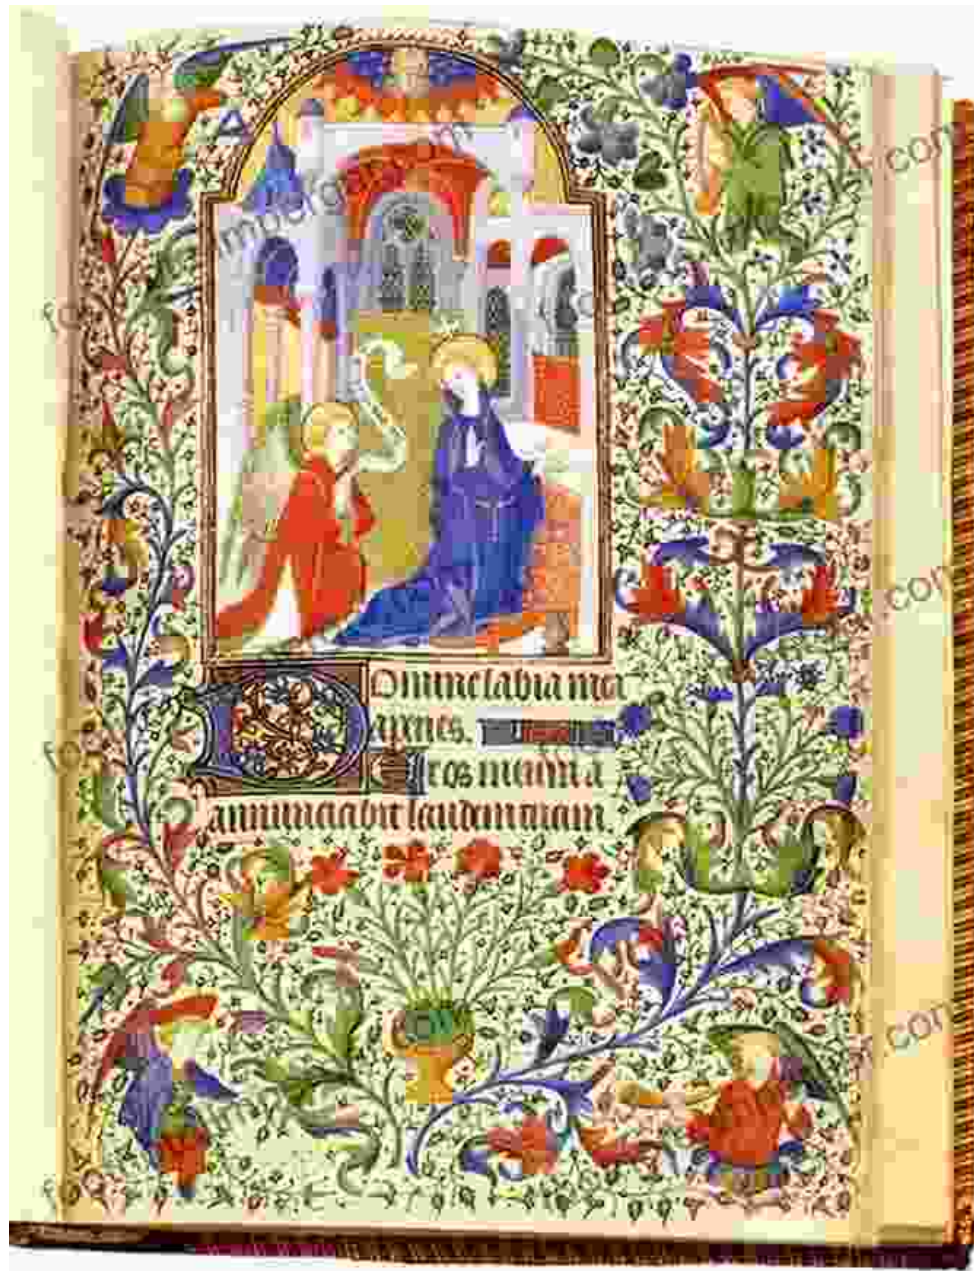 Domine labia mea
aperies.
Et os meum a
annunciabit laudem tuam
.com
.com
.com